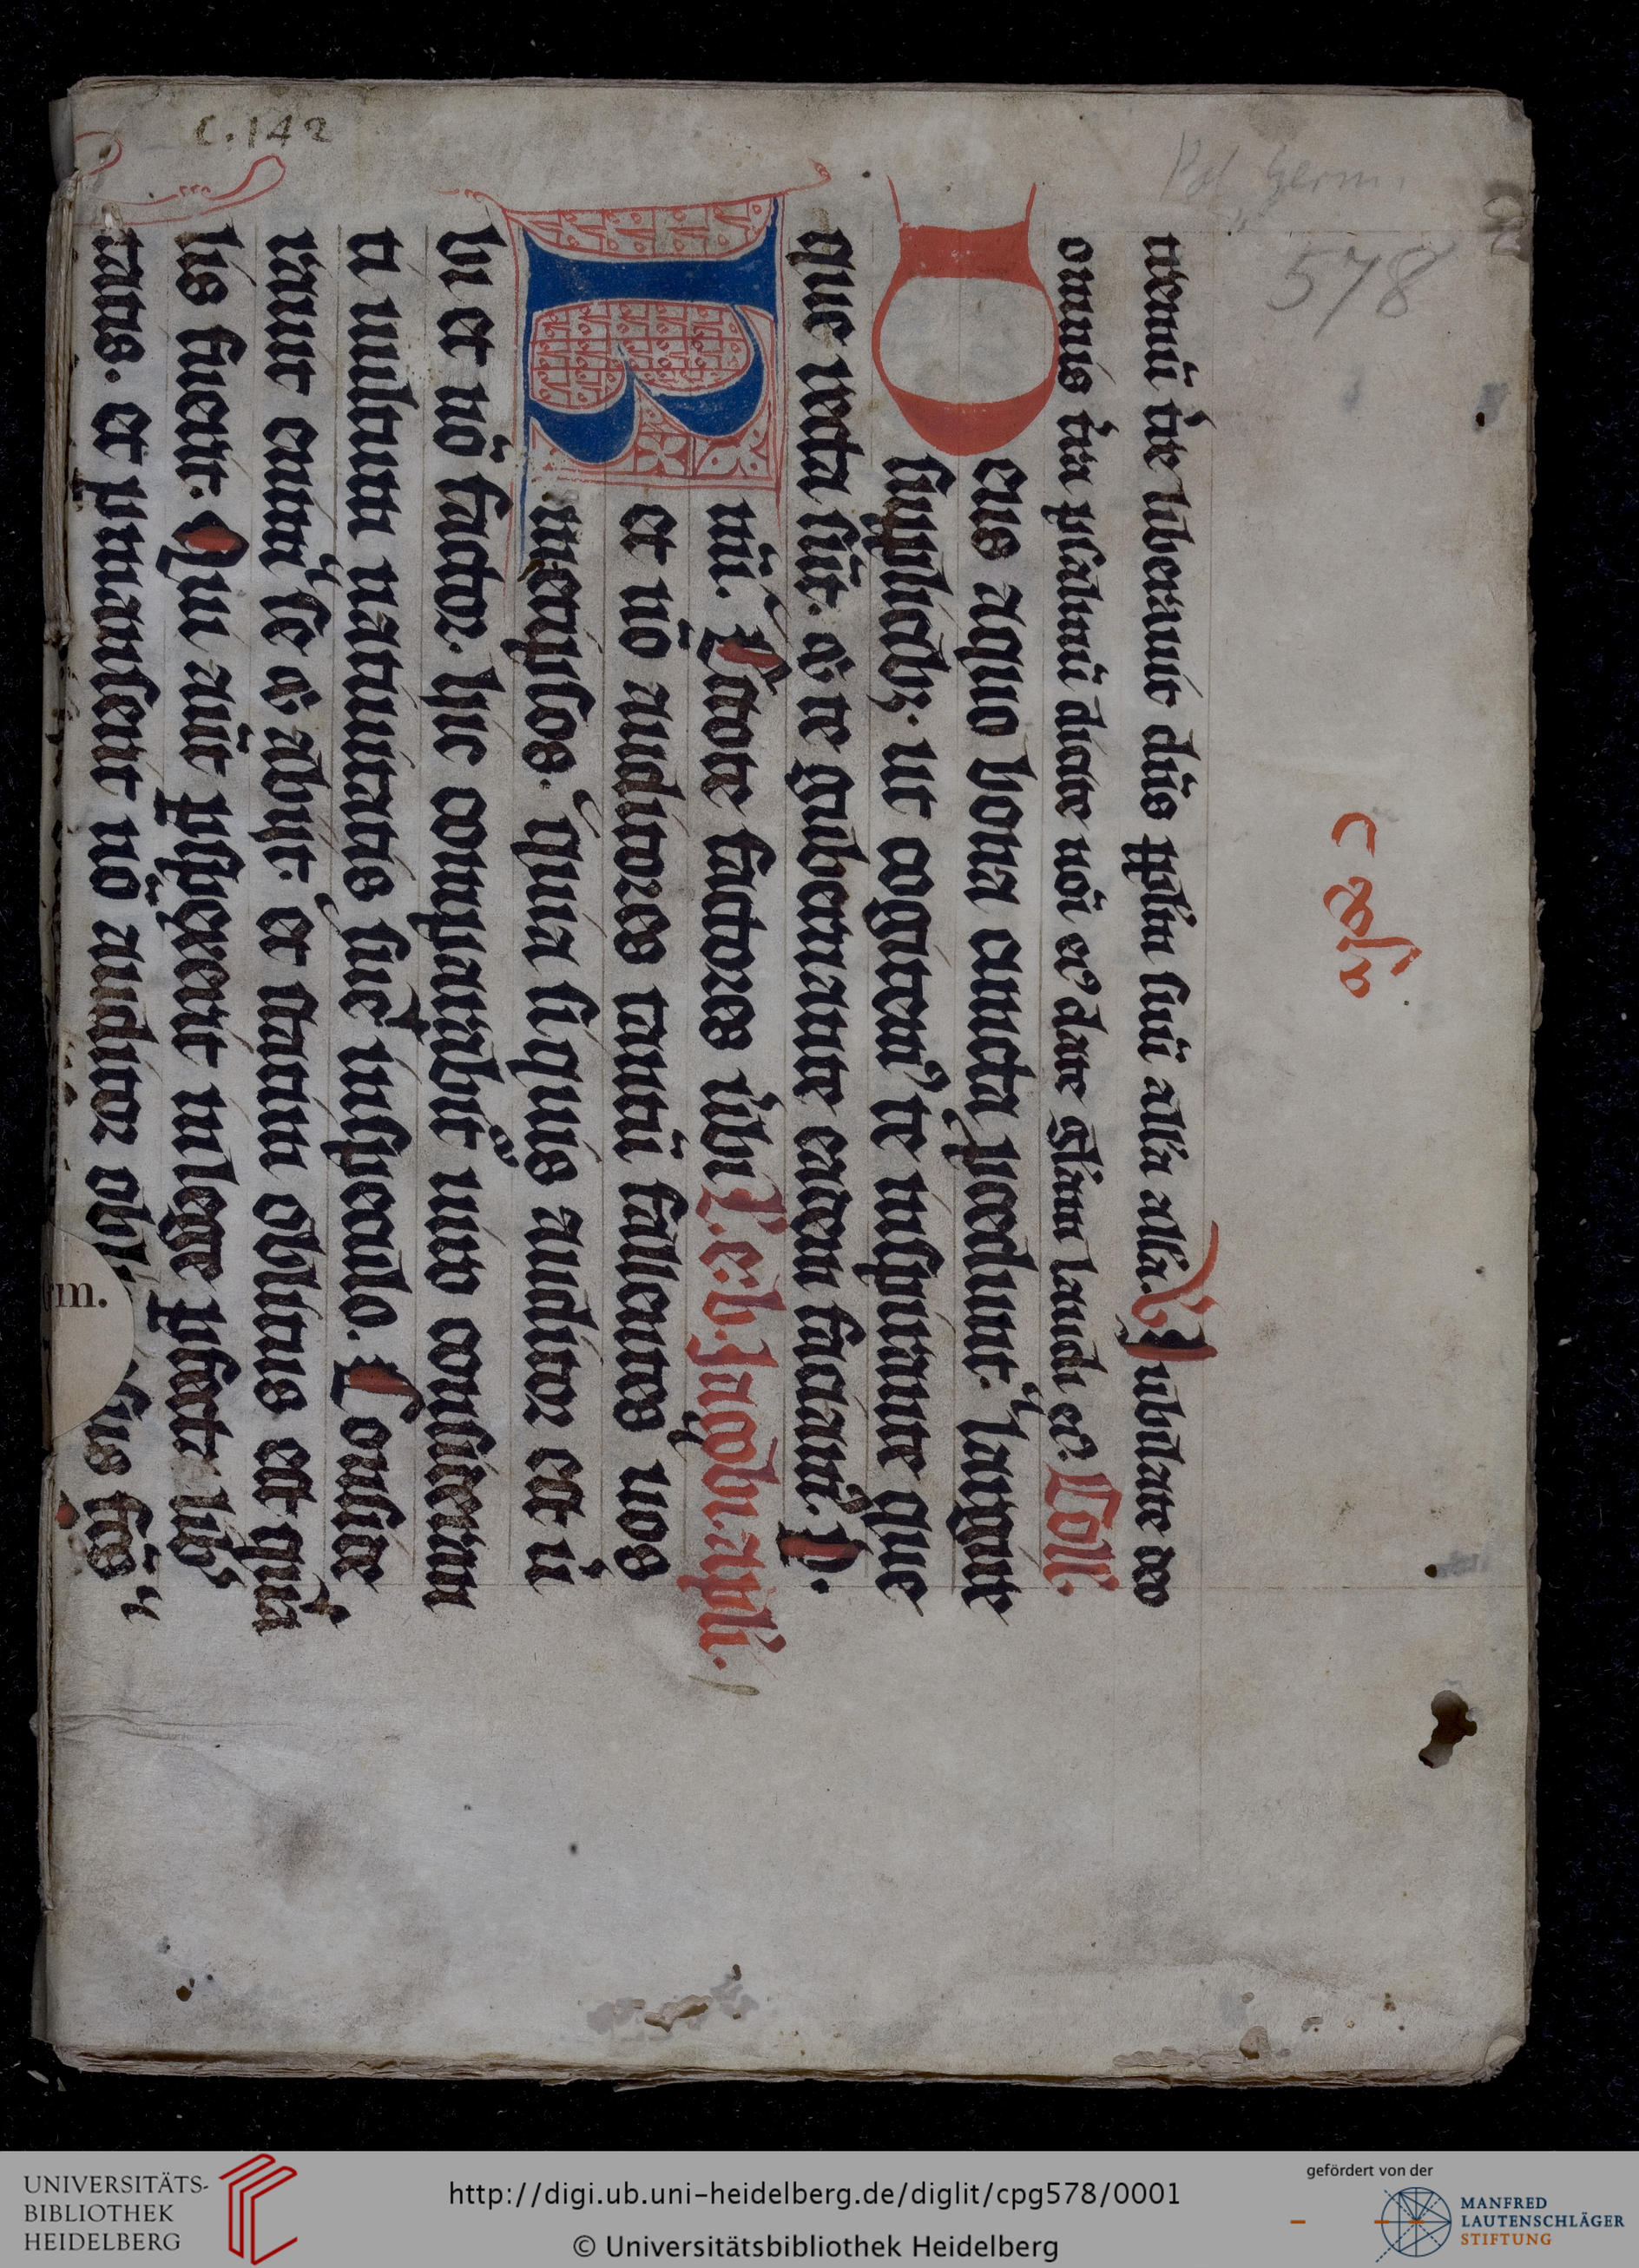 C. 142
Pal. Germ.
578
cxlv
nemū t̄re liberauit dn̄s ppl̄m suū all̓a all̓a. V Iubilate deo
omnis t̄ra psalmū dicite nōi eꝰ date gl̓iam laudi eꝰ. Coll̓.
D eus a quo bona cuncta ꝓcedunt. largire
supplicibꝫ. ut cogitemꝰ te inspirante que
que recta sūt. ⁊ te gubernante eadem faciamꝰ. P.
nū. Estote factores ūbi L. e. b. Jacobi. apl̓i.
R et nō auditores tantū fallentes uos
metip̄sos. Quia si quis auditor est ū
bi et nō factor. hic comparabit̉ uiro consideran
ti uultum natiuitatis sue in speculo. Consid̓e
rauit enim se ⁊ abijt. et statim oblitus est qualis
fuerit. Qui aūt ꝑspexerit in lege ꝑfecta lib̓
tatis. et permanserit nō auditor obl
rm.
UNIVERSITÄTS-
BIBLIOTHEK
HEIDELBERG
http://digi.ub.uni-heidelberg.de/diglit/cpg578/0001
© Universitätsbibliothek Heidelberg
gefördert von der
MANFRED
LAUTENSCHLÄGER
STIFTUNG